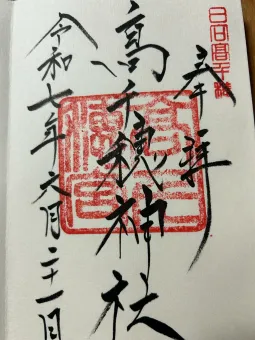 奉拝
日向高千穂
高千穂神社
令和七年六月二十一日